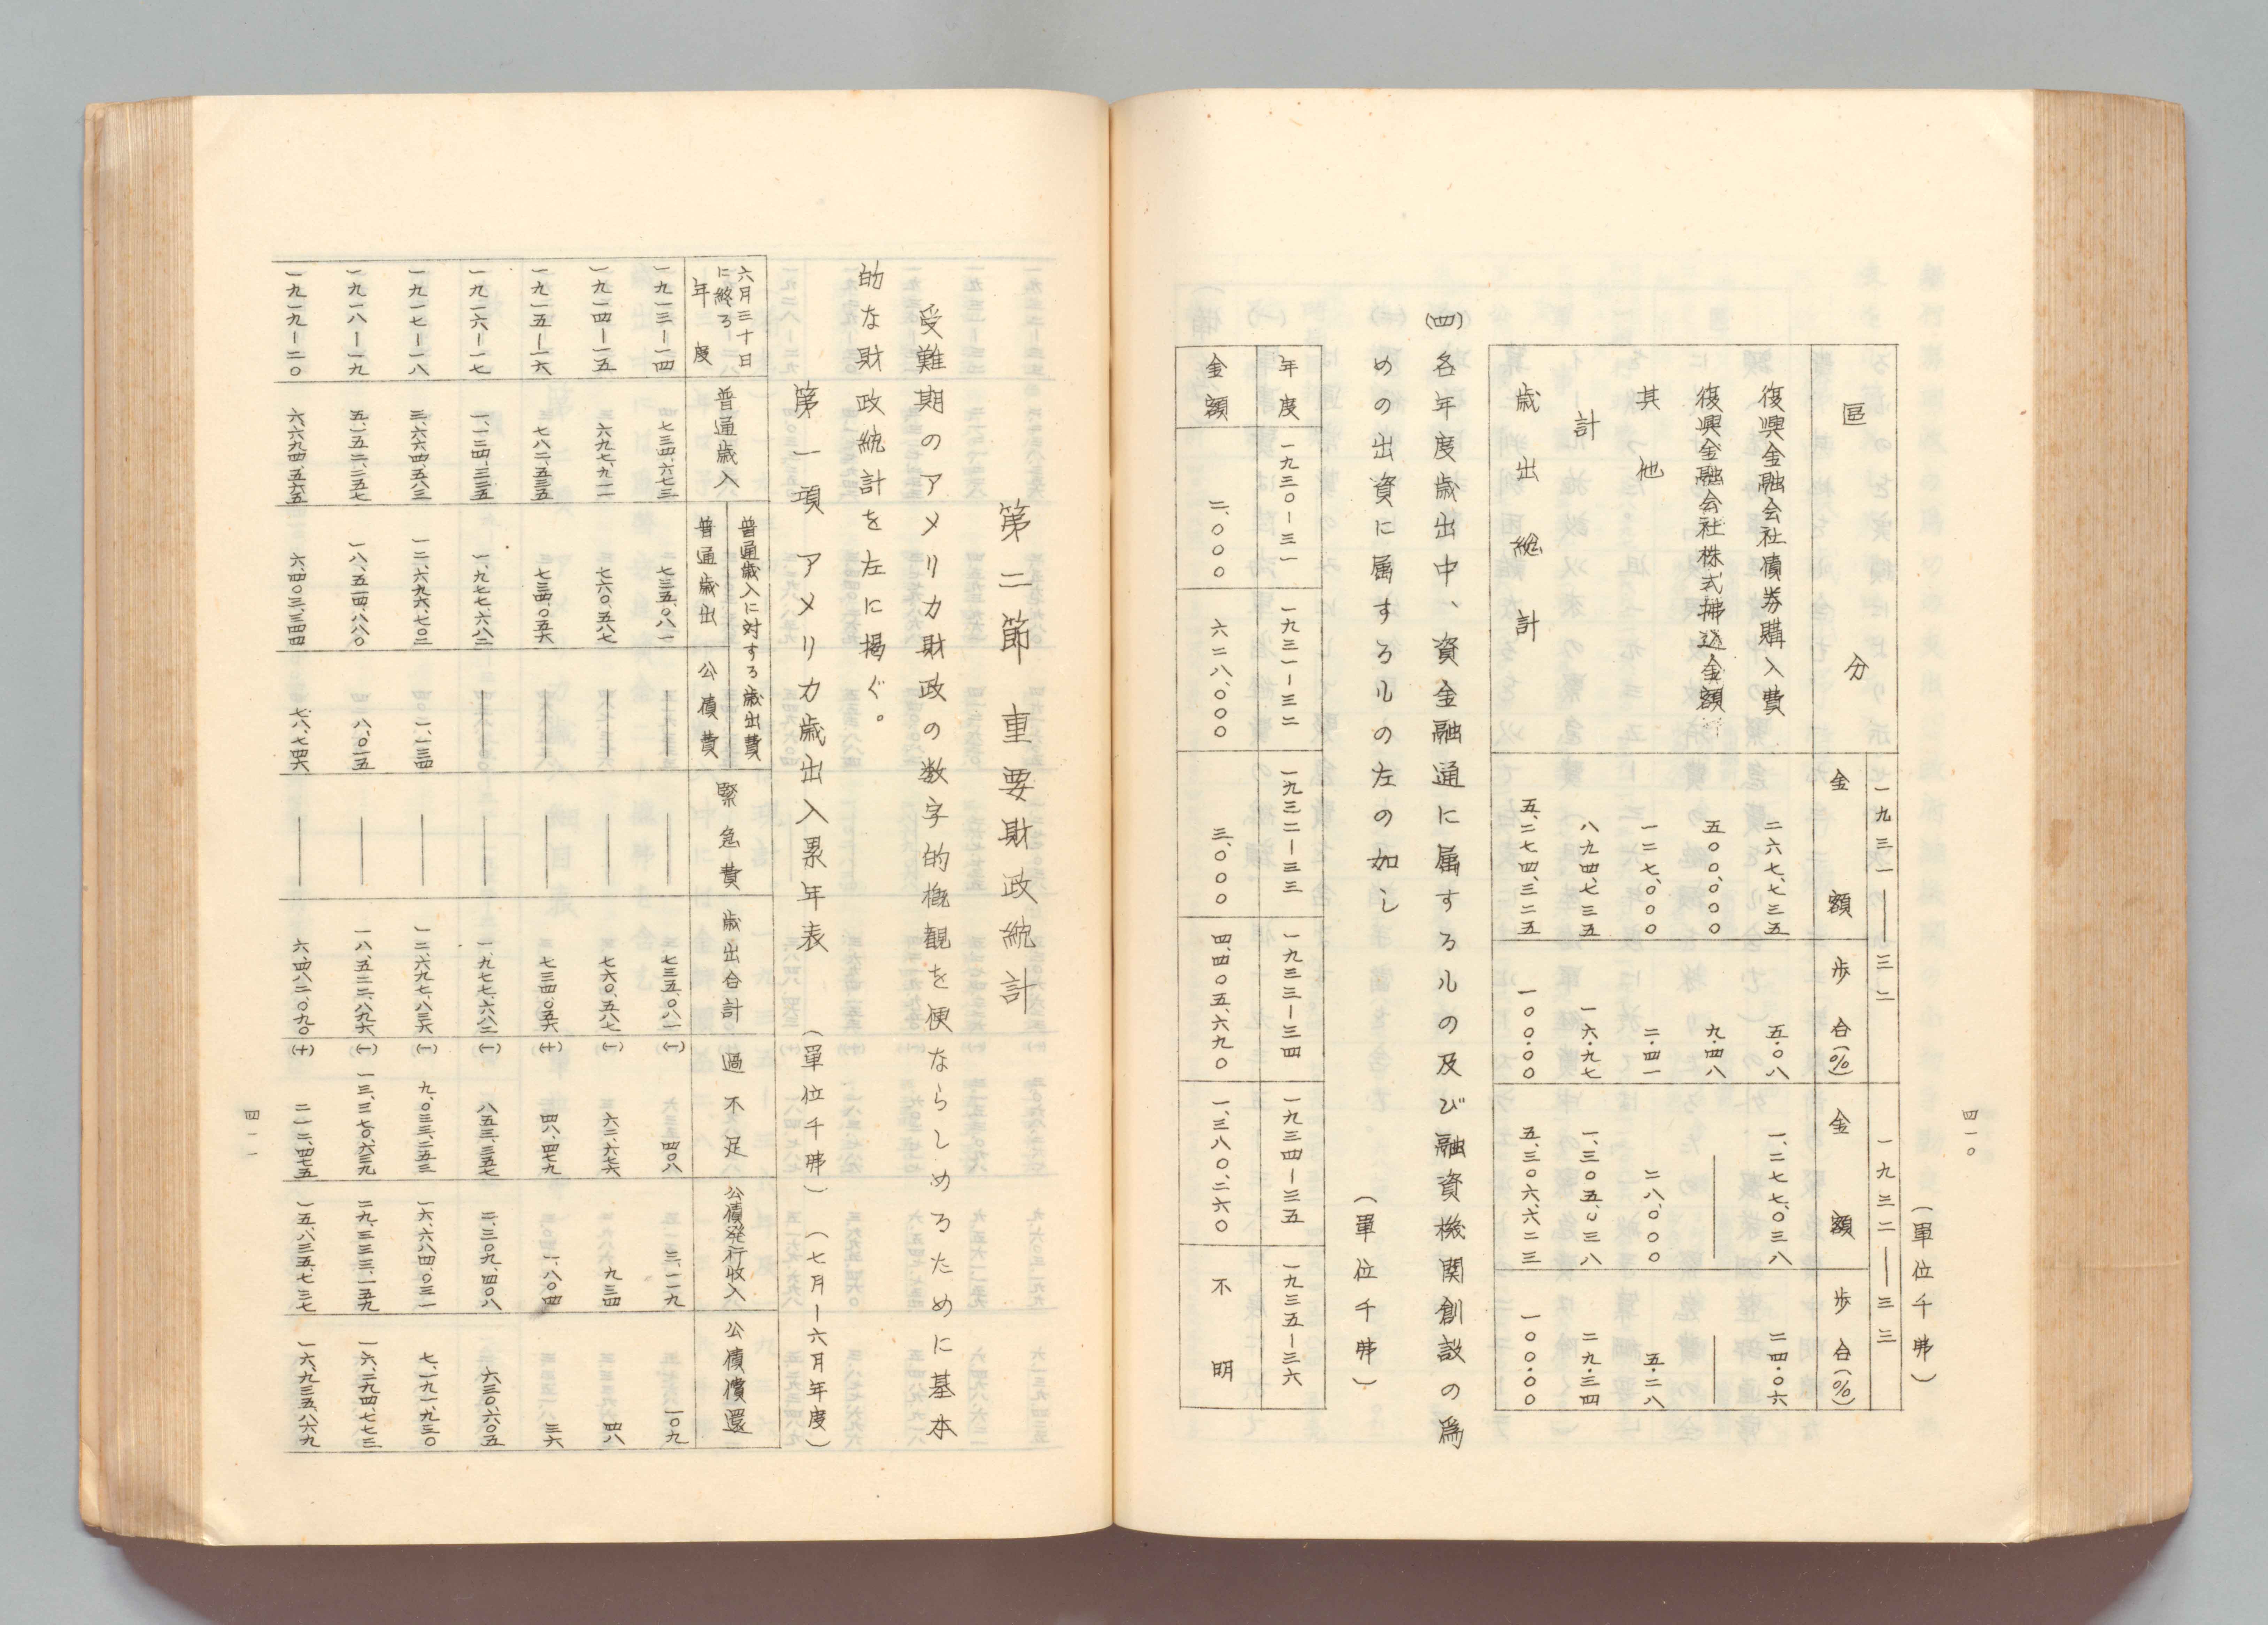 四一〇
（單位千弗）
區分
一九三一――三二
一九三二――三三
金額
歩合(%)
金額
歩合(%)
復興金融会社債券購入費 二六七、七三五 五・〇八 一、二七七、〇三八 二四・〇六
復興金融会社株式拂込金額 五〇〇、〇〇〇 九・四八 ――
其他 一二七、〇〇〇 二・四一 二八、〇〇〇 五・二八
計 八九四、七三五 一六・九七 一、三〇五、〇三八 二九・三四
歳出総計 五、二七四、三二五 一〇〇・〇〇 五、三〇六、六二三 一〇〇・〇〇
(四)各年度歳出中、資金融通に属するルの及び融資機関創設の爲
めの出資に属するルの左の如し
（單位千弗）
年度 一九三〇―三一 一九三一―三二 一九三二―三三 一九三三―三四 一九三四―三五 一九三五―三六
金額 二、〇〇〇 六二八、〇〇〇 三、〇〇〇 四四〇五、六九〇 一、三八〇、二六〇 不明
第二節 重要財政統計
受難期のアメリカ財政の数字的概観を便ならしめるために基本
的な財政統計を左に掲ぐ。
第一項 アメリカ歳出入累年表 （單位千弗）（七月―六月年度）
六月三十日
に終る
年度
普通歳入
普通歳入に対する歳出費
普通歳出
公債費
緊急費
歳出合計
過不足
公債発行收入
公債償還
一九一三―一四 七三四、六七三 七三五、〇八一 ―― ―― 七三五、〇八一 (一) 四〇八 三、一一九 一〇九
一九一四―一五 六九七、九一一 七六〇、五八七 ―― ―― 七六〇、五八七 (一) 六二、六七六 九三四 四八
一九一五―一六 七八二、五三五 七三四、〇五六 ―― ―― 七三四、〇五六 (十) 四八、四七九 一、八〇四 三六
一九一六―一七 一、一二四、三二五 一、九七七、六八二 ―― ―― 一、九七七、六八二 (一) 八五三、三五七 二、三〇九、四〇八 六三〇、六〇五
一九一七―一八 三、六六四、五八三 一二、六九六、七〇二 一、一三四 ―― 一二、六九七、八三六 (一) 九、〇三三、二五三 一六、六八四、〇三一 七、一九一、九三〇
一九一八―一九 五、一五二、二五七 一八、五一四、八八〇 八、〇一五 ―― 一八、五二二、八九六 (一) 一三、三七〇、六三九 二九、三三三、一五九 一六、二九四、七七三
一九一九―二〇 六、六九四、五六五 六、四〇三、三四四 七八、七四六 ―― 六、四八二、〇九〇 (十) 二一二、四七五 一五、八三五、七三七 一六、九三五、八六九
四一一